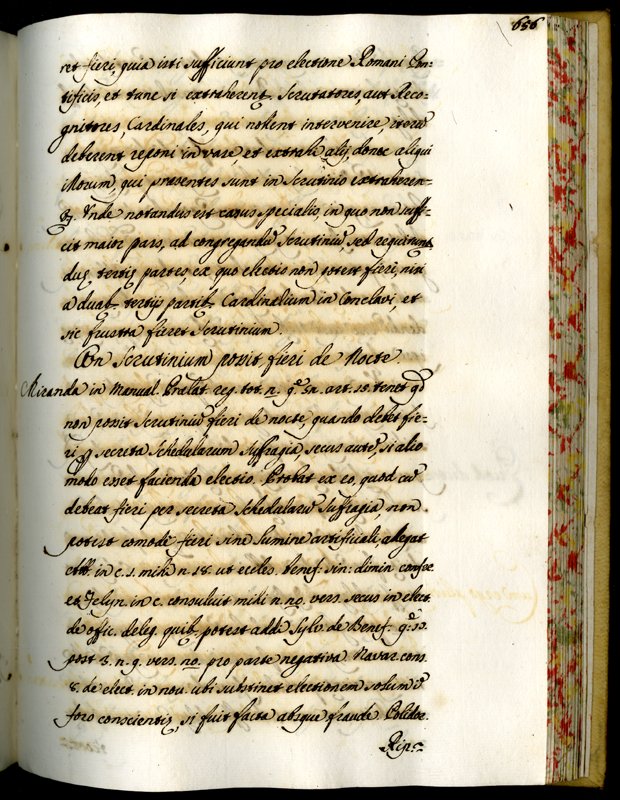 656
ret fieri, quia isti sufficiunt pro electione Romani Pon:
tificis, et tunc si extraherent. Scrutatores, aut Reco-
gnitores, Cardinales, qui nollent intervenire, iterũ
deberent reponi in vase, et extrahi alij, donec aliqui
illorum, qui præsentes sunt in Scrutinio extraheren-
tr. Vnde notandus est casus specialis, in quo non suffi-
cit maior pars, ad congregandũ Scrutiniũ, sed requirunt.
duę tertię partes, ex quo electio non potest fieri, nisi
a duab. tertijs partib. Cardinalium in Conclavi, et
sic frustra fieret Scrutinium.
An Scrutinium possit fieri de Nocte.
Miranda in Manual. Prælat. reg. tot. n. q. art. 15. tenet qd
non possit Scrutiniũ fieri de nocte, quando debet fie-
ri p secreta Schedularum Suffragia, secus autẽ, si alio
modo esset facienda electio. Probat ex eo, quod cũ
debeat fieri per secreta Schedularũ Suffragia, non
potest comodè fieri sine lumine artificiali, allegat
in c. 1. mihi n. 18. ut eccles. benef: sin: dimin. confer.
et Felyn. in c. consuluit mihi n. no. vers. secus in elect.
de offic. deleg. quib. potest addi Sylv. de Benef. q.
post 3. n. 9. vers. no. pro parte negativa. Navar. cons.
8. de elect. in nou. ubi substinet electionem solum ĩ
foro conscientię, si fuit facta absque fraude. Polidor.
Rip.